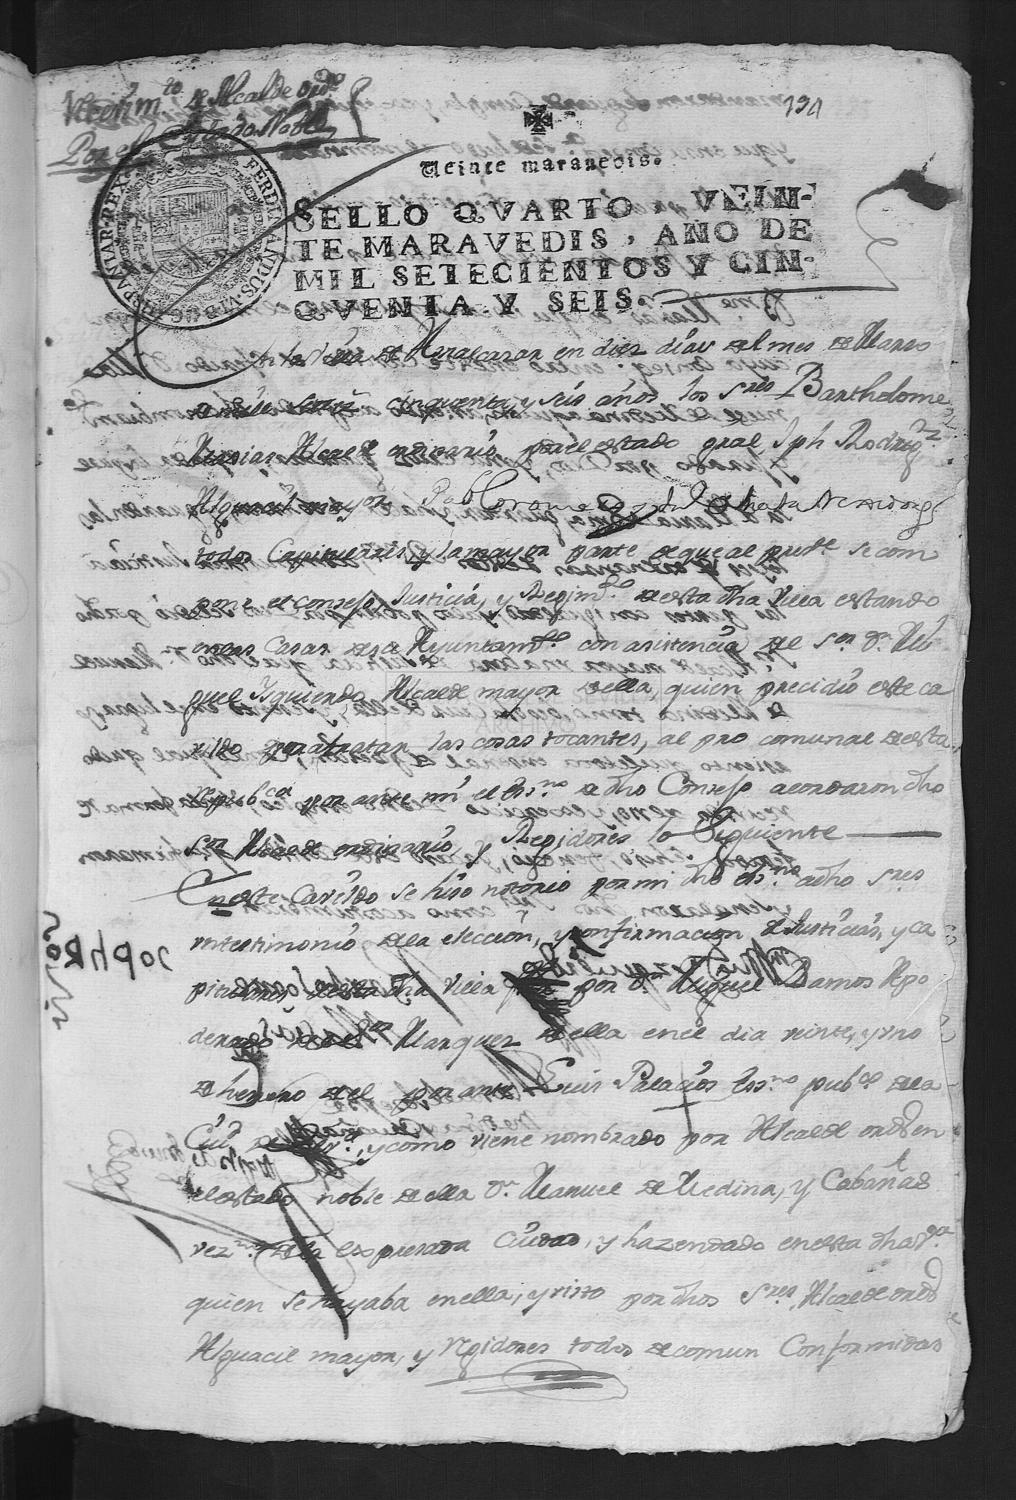 Recevim.to de Alcalde ord.o
Por el Estado Noble
194
Veinte maravedis.
SELLO QVARTO, VEIN-
TE MARAVEDIS, AÑO DE
MIL SETECIENTOS Y CIN-
QVENTA Y SEIS.
FERDINANDUS VI D G HISPANIAR REX
En la villa de Benalcazar en diez dias del mes de Marzo
de mill setez.s cinquenta y seis años los s.res Bartholome
Alcalde ordinario por el estado gral Jph Rodrig.z
Alguacil mayor Pablo Romero Regidores
todos Capitulares y la mayor parte de que al pres.te se com
pone el consejo Justicia, y Regim.to de esta dha villa estando
en las Casas de su Ayuntam.to con asistencia de el s.or d.n Mi
guel Yzquierdo Alcalde mayor de ella, quien precidio este ca
vildo para tratar las cosas tocantes, al pro comunal de esta
republica por ante mi el es.no de dho Consejo acordaron dho
s.or Alcalde ordinario, y Regidores lo siguiente
En este Cavildo se hiso notorio por mi dho es.no a dho s.res
un testimonio de la eleccion, y confirmacion de Justicias, y ca
pitulares de esta dha villa por d.n Miguel Ramos Apo
derado del s.or Marquez de ella en el dia veinte, y uno
de henero de el por ante Luis Palacios es.no pub.co de la
Ciu.d de, y como viene nombrado por Alcalde ord.o en
el estado noble de ella d.n Manuel de Medina, y Cabañas
vez.no de la expresada Ciudad, y hazendado en esta dha v.a
quien se hayaba en ella, y visto por dhos s.res Alcalde ord.o
Alguacil mayor, y regidores todos de comun Conformidad